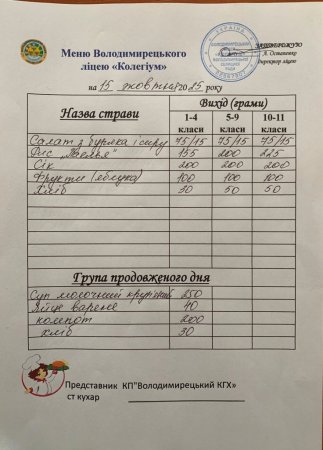 Меню Володимирецького
ліцею «Колегіум»
ЗАТВЕРДЖУЮ
Директор ліцею
на 15 жовтня 2025 року
Назва страви Вихід (грами)
1-4 класи 5-9 класи 10-11 класи
Салат з буряка і сиру 75/15 75/15 75/15
Рис 155 200 225
Сік 200 200 200
Фрукти (яблука) 100 100 100
Хліб 30 50 50
Група продовженого дня
Суп молочний 250
Яйце варене 40
компот 200
хліб 30
Представник КП"Володимирецький КГХ»
ст кухар